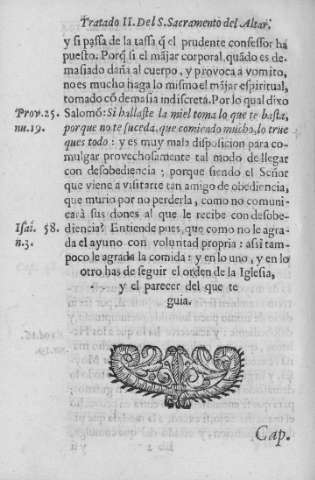 Tratado II. Del S. Sacramento del Altar.
y si passa de la tassa q̃ el prudente confessor ha
puesto. Porq̃ si el mãjar corporal, quãdo es de-
masiado daña al cuerpo, y provoca a vomito,
no es mucho haga lo mismo el mãjar espiritual,
tomado cõ demasia indiscreta. Por lo qual dixo
Prov. 25. Salomõ: Si hallaste la miel toma lo que te basta,
nu. 19. porque no te suceda, que comiendo mucho, lo true
ques todo: y es muy mala disposicion para co-
mulgar provechosamente tal modo de llegar
con desobediencia; porque siendo el Señor
que viene a visitarte tan amigo de obediencia,
que murio por no perderla, como no comuni
cará sus dones al que le recibe con desobe-
Isai. 58. diencia? Entiende pues, que como no le agra-
n. 3. da el ayuno con voluntad propria: assi tam-
poco le agrada la comida: y en lo uno, y en lo
otro has de seguir el orden de la Iglesia,
y el parecer del que te
guia.
Cap.